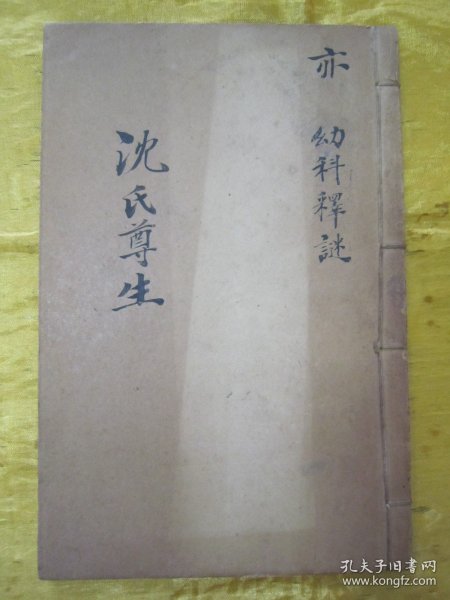 亦
幼科釋謎
沈氏尊生
孔夫子旧书网
www.kongfz.com